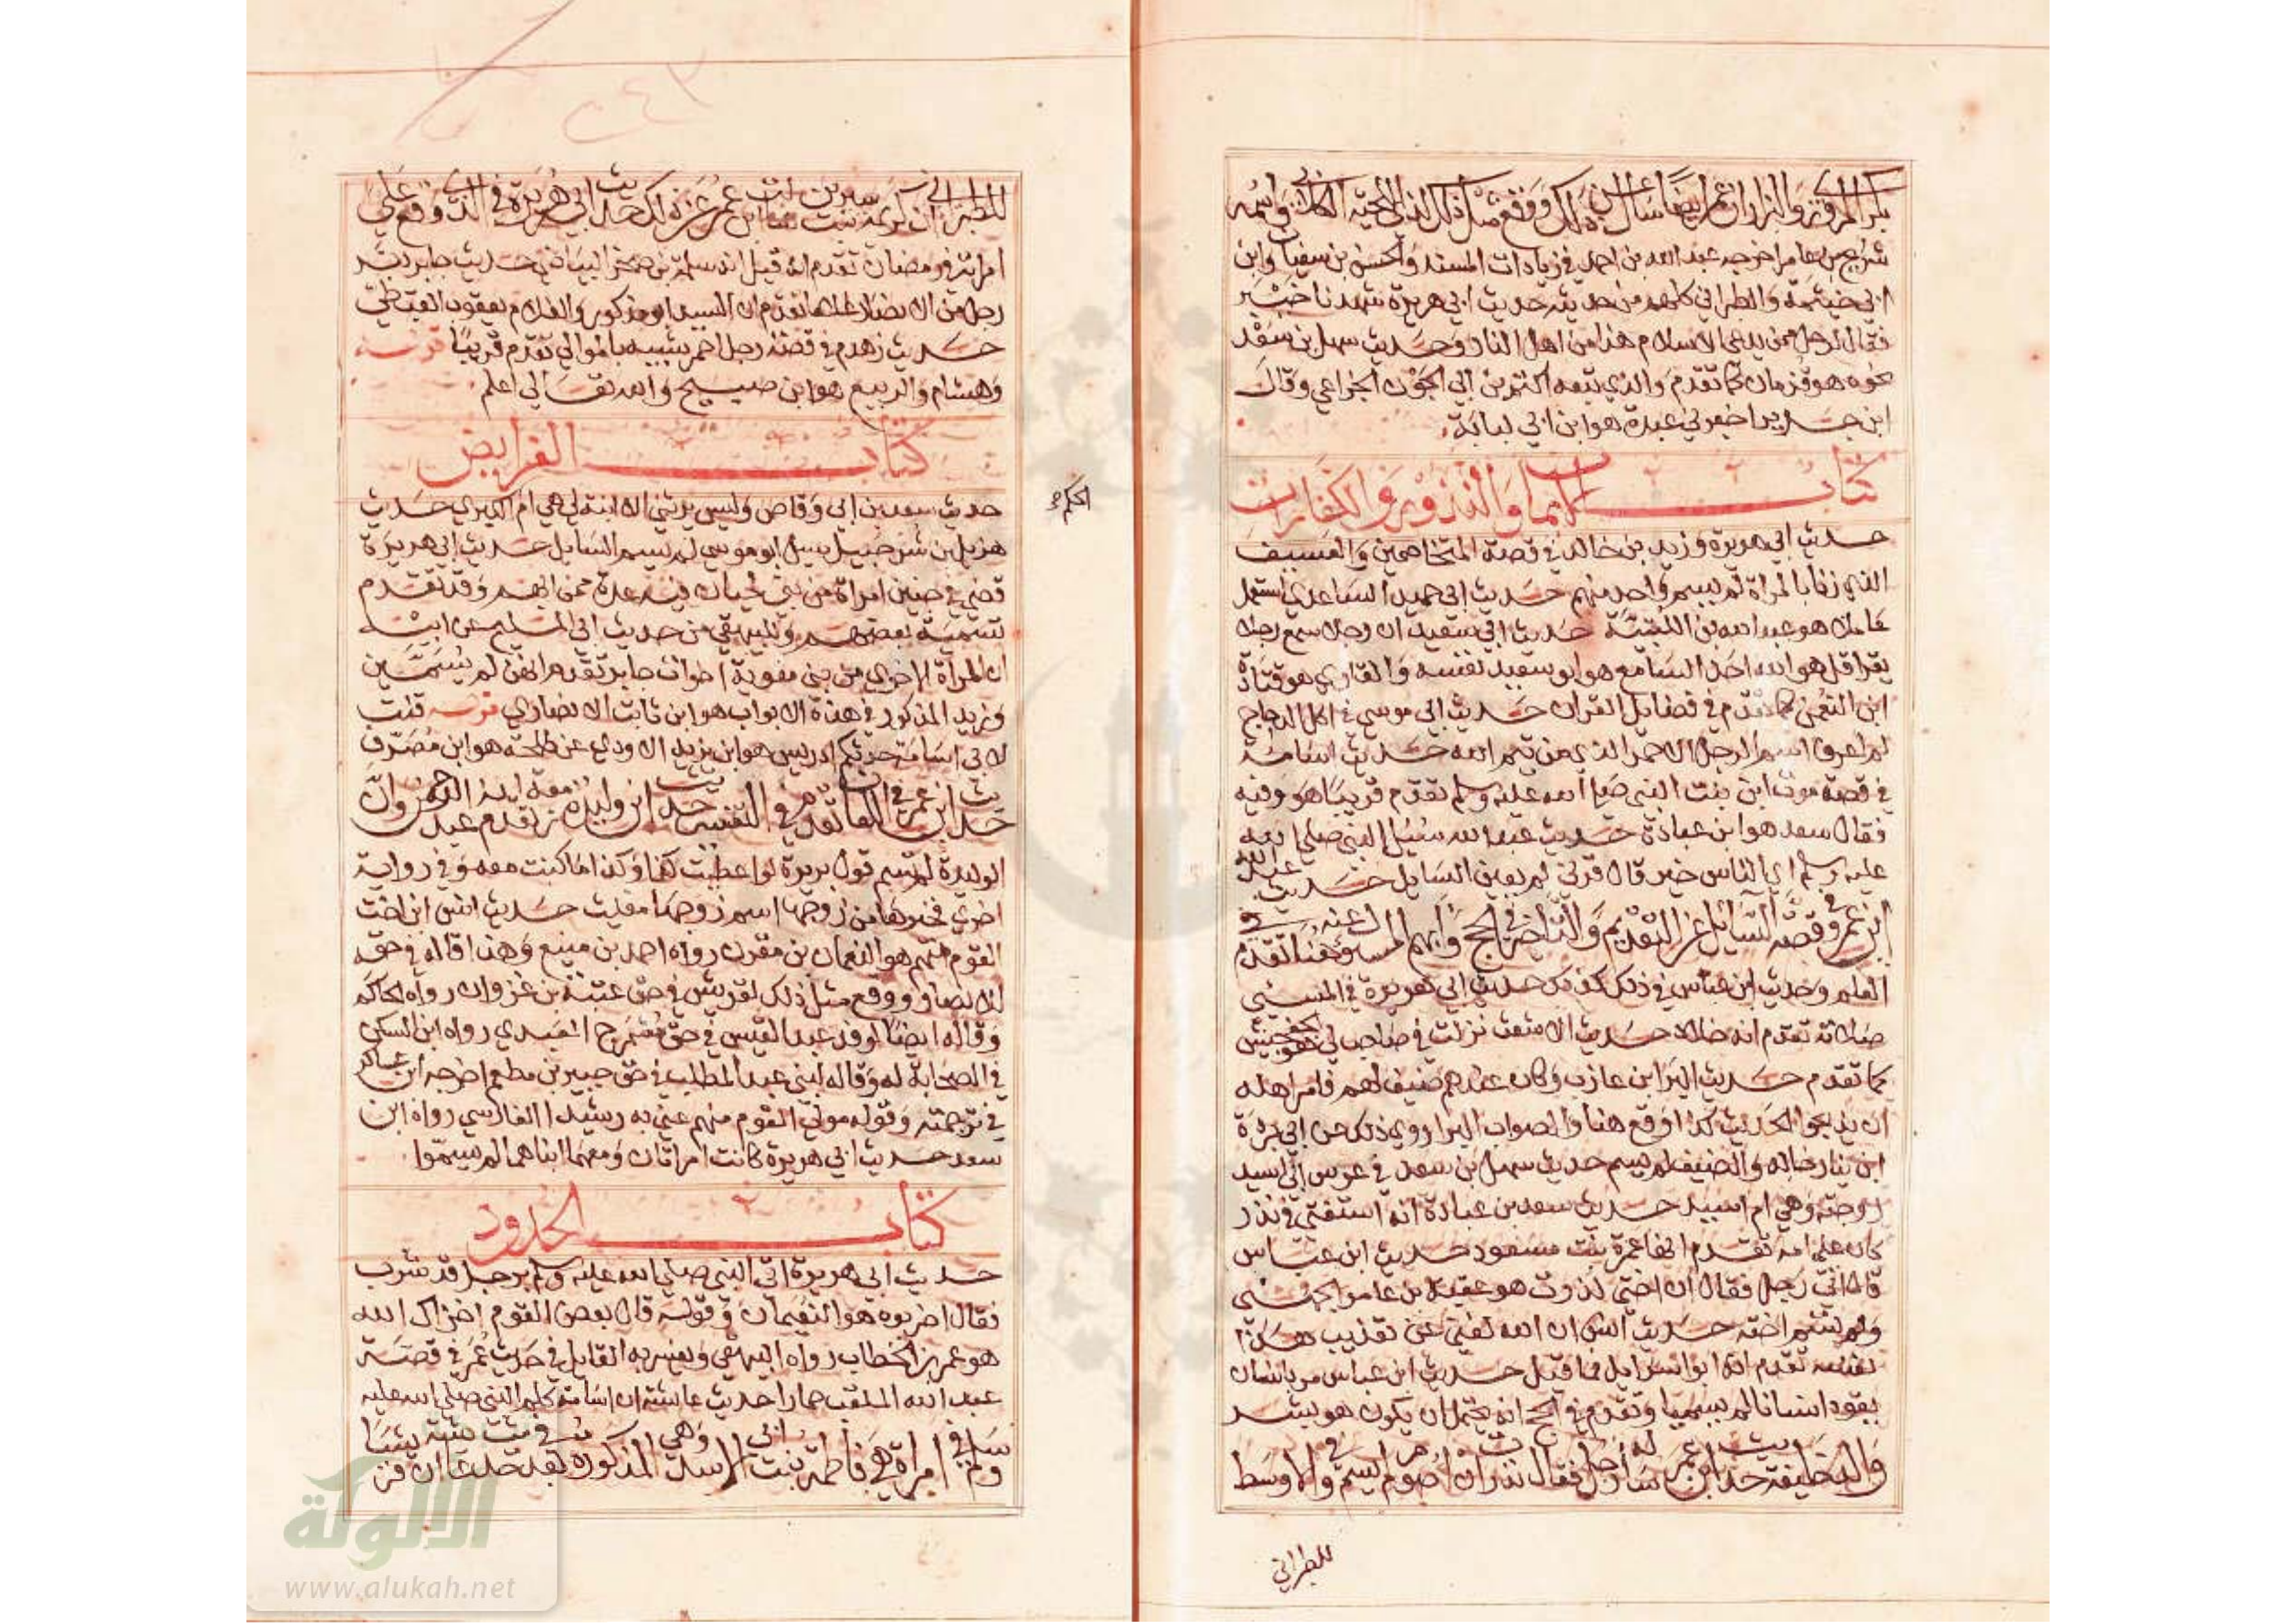 بكر المروزي والبزار ان عمر ايضا سال عن ذلك ووقع مثل ذلك لذي اللحية الكلابي واسمه
شريح بن عامر اخرجه عبد الله بن احمد في زيادات المسند والحسن بن سفيان وابن
ابي خيثمة والطبراني كلهم من حديثه حديث ابي هريرة شهدنا خيبر
فقال لرجل ممن يدعي الاسلام هذا من اهل النار وحديث سهل بن سعد
نحوه هو قزمان كما تقدم والذي يتبعه اكثم بن ابي الجون الخزاعي وقال
ابن جرير اخبرني عبدة هو ابن ابي لبابة
كتاب الايمان والنذور والكفارات
حديث ابي هريرة وزيد بن خالد في قصة المتخاصمين والعسيف
الذي زنا بالمراة لم يسم واحد منهم حديث ابي حميد الساعدي استعمل
عاملا هو عبد الله بن اللتبية حديث ابي سعيد ان رجلا سمع رجلا
يقرا قل هو الله احد السامع هو ابو سعيد نفسه والقاري هو قتادة
ابن النعمن كما تقدم في فضايل القران حديث ابي موسى في اكل الدجاج
لم اعرف اسم الرجل الاحمر الذي من تيم الله حديث اسامة
في قصة موت ابن بنت النبي صلى الله عليه وسلم تقدم قريبا هو وفيه
فقال سعد هو ابن عبادة حديث عبد الله سئل النبي صلى الله
عليه وسلم اي الناس خير قال قرني لم يعين السايل حديث عبد الله
ابن عمرو في قصة السائل عن التقديم والتاخير في الحج وابهم المسؤل عنه هنا تقدم في
العلم وحديث ابن عباس في ذلك كذلك حديث ابي هريرة في المسيئي
صلاته تقدم انه خلاد حديث الاشعث نزلت في صاحب لي هو جفشيش
كما تقدم حديث البرا بن عازب وكان عندهم ضيف لهم فامر اهله
ان يذبحوا الحديث كذا وقع هنا والصواب البرا روي ذلك عن ابي بردة
ابن نيار خاله والضيف لم يسم حديث سهل بن سعد في عرس ابي اسيد
زوجته وهي ام اسيد حديث سعد بن عبادة انه استفتى في نذر
كان على امه تقدم انها عمرة بنت مسعود حديث ابن عباس
قال اتى رجل فقال ان اختي نذرت هو عقبة بن عامر الجهني
ولم تسم اخته حديث انس ان الله لغني عن تعذيب هذا
نفسه تقدم انه ابو اسرايل فيما قيل حديث ابن عباس مر بانسان
يقود انسانا لم يسميا وتقدم في الحج انه يحتمل ان يكون هو بشر
والد خليفة حديث ابن عمر ساله رجل فقال نذرت ان اصوم لم يسم وفي الاوسط
للطبراني
للطبراني ان كريمة بنت سيرين سالت ابن عمر عن ذلك حديث ابي هريرة في الذي وقع على
امراته في رمضان تقدم انه قيل انه سلمة بن صخر البياضي حديث جابر دبر
رجل من الانصار غلاما تقدم ان السيد ابو مذكور والغلام يعقوب القبطي
حديث زهدم في قصة رجل احمر شبيه بالموالي تقدم قريبا قوله
وهشام والربيع هو ابن صبيح والله تعالى اعلم
كتاب الفرايض
حديث سعد بن ابي وقاص وليس يرثني الا ابنة لي هي ام الحكم الكبري حديث
هزيل بن شرحبيل سيل ابو موسى لم يسم السايل حديث ابي هريرة
قضى في جنين امراة من بني لحيان فيه عدة ممن ابهم وقد تقدم
تسمية بعضهم وللبيهقي من حديث ابي المليح عن ابيه
ان المراة الاخرى من بني معوية اخوات جابر تقدم انهن لم يسمين
وزيد المذكور في هذه الابواب هو ابن ثابت الانصاري قوله قلت
لابي اسامة حدثكم ادريس هو ابن يزيد الاودي عن طلحة هو ابن مصرف
حديث ابن عمر في اللعان تقدم في التفسير حديث ابن وليدة زمعة تقدم انه عبد الرحمن وان
الوليدة لم تسم قول بريرة لو اعطيت كذا وكذا ما كنت معه وفي رواية
اخرى فخيرها من زوجها اسم زوجها مغيث حديث انس ابن اخت
القوم منهم هو النعمان بن مقرن رواه احمد بن منيع وهذا قاله في حق
الانصار ووقع مثل ذلك لقريش في حق عتبة بن غزوان رواه الحاكم
وقاله ايضا لوفد عبد القيس في حق مشمرج العبدي رواه ابن السكن
في الصحابة له وقاله لبني عبد المطلب في حق جبير بن مطعم اخرجه ابن عساكر
في ترجمته وقوله مولى القوم منهم عني به رشيدا الفارسي رواه ابن
سعد حديث ابي هريرة كانت امراتان ومعهما ابناهما لم يسموا
الحكم
كتاب الحدود
حديث ابي هريرة اتي النبي صلى الله عليه وسلم برجل قد شرب
فقال اضربوه هو النعيمان وقوله قال بعض القوم اخزاك الله
هو عمر بن الخطاب رواه البيهقي ويفسر به القايل في حديث عمر في قصة
عبد الله الملقب حمارا حديث عائشة ان اسامة كلم النبي صلى الله عليه
وسلم في امراة هي فاطمة بنت ابي الاسد وهي المذكورة بعد
الألوكة
www.alukah.net